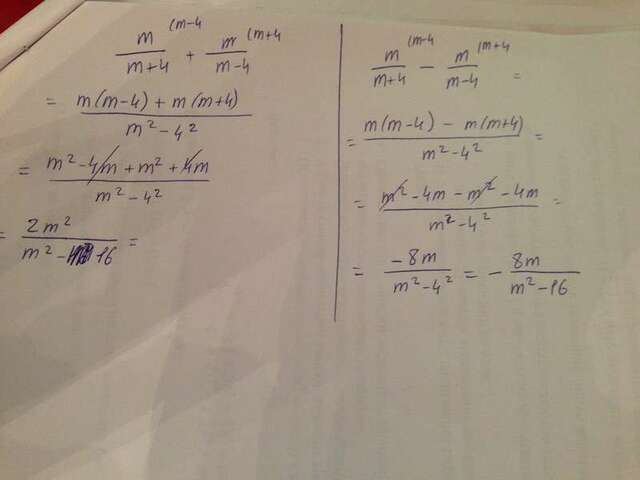 m/(m+4) (m-4 + m/(m-4) (m+4
= (m(m-4) + m(m+4))/(m² - 4²)
= (m² - 4m + m² + 4m)/(m² - 4²)
= 2m²/(m² - 16) =
m/(m+4) (m-4 - m/(m-4) (m+4 =
= (m(m-4) - m(m+4))/(m² - 4²) =
= (m² - 4m - m² - 4m)/(m² - 4²) =
= -8m/(m² - 4²) = - 8m/(m² - 16)